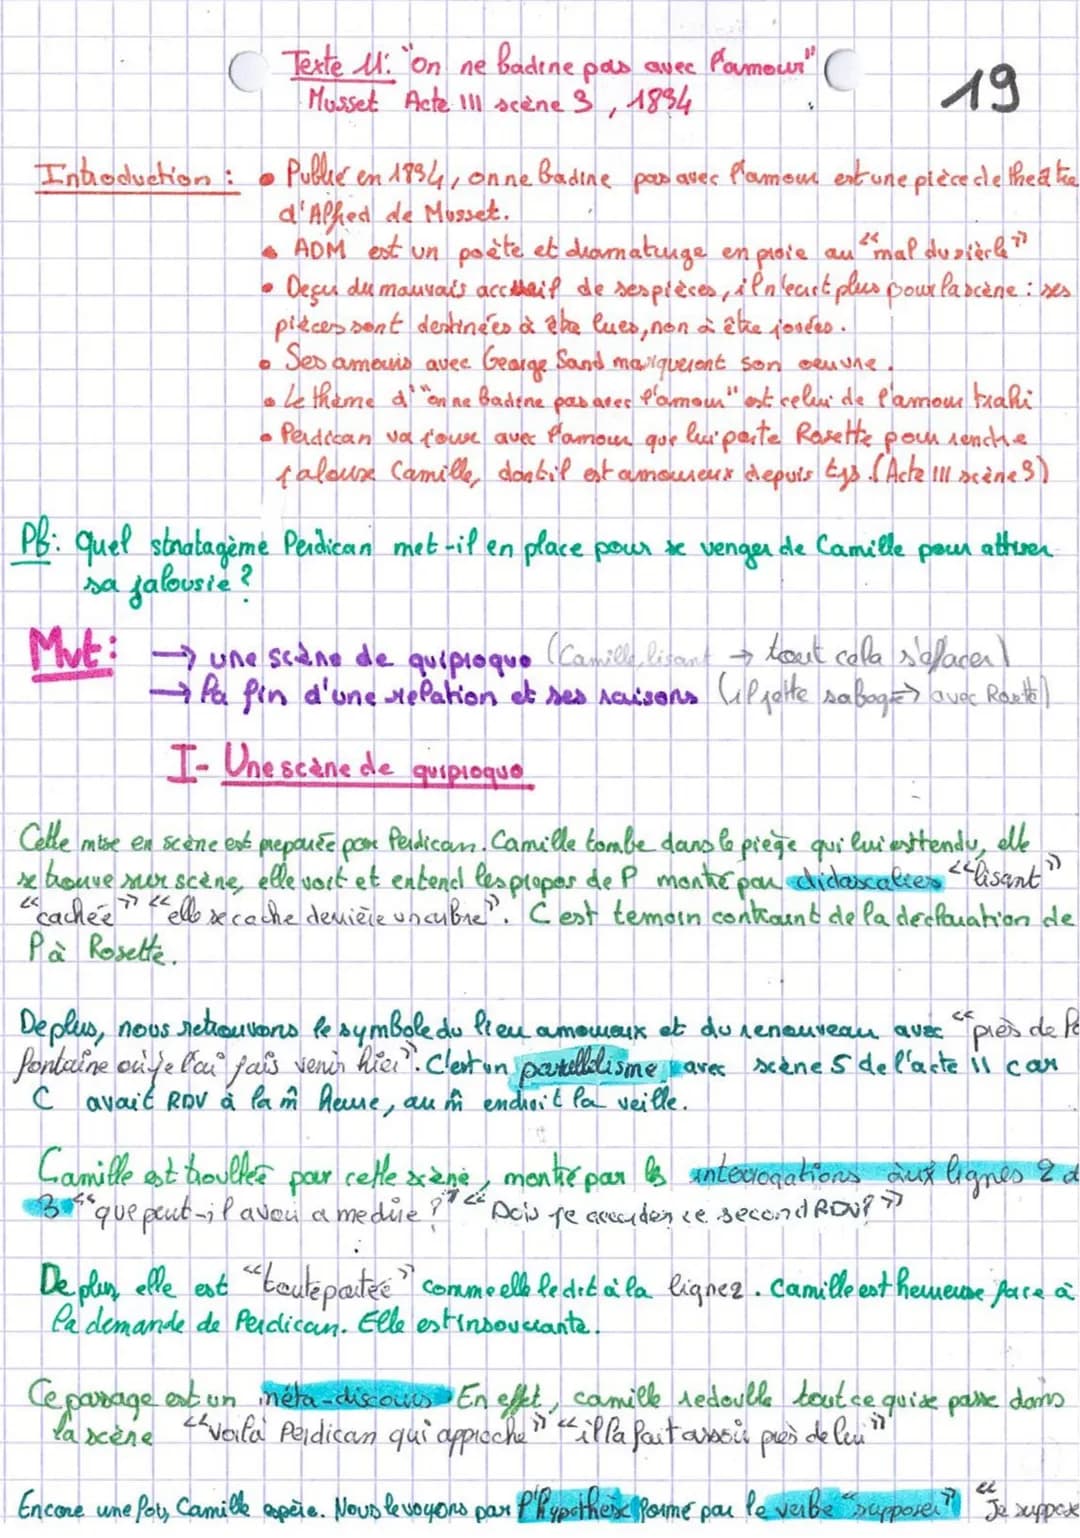 Texte 11: "On ne badine pas avec l'amour"
Musset Acte III scène 3, 1834
19
Introduction : • Publié en 1834, on ne badine pas avec l'amour est une pièce de theatre
d'Alfred de Musset.
• ADM est un poète et dramaturge en proie au "mal du siècle"
• Deçu du mauvais accueil de ses pièces, il n'ecrit plus pour la scène : ses
pièces sont destinées à être lues, non à être jouées.
• Ses amours avec George Sand marqueront son oeuvre.
• Le thème d' "on ne badine pas avec l'amour" est celui de l'amour trahi
• Perdican va jouer avec l'amour que lui porte Rosette pour rendre
jalouse Camille, dont il est amoureux depuis tjs. (Acte III scène 3)
Pb: Quel stratagème Perdican met-il en place pour se venger de Camille pour attiser
sa jalousie ?
Mvt: → une scène de quiproquo (Camille, lisant → tout cela s'effacer)
→ la fin d'une relation et ses raisons (il jette sa bague → avec Rosette)
I- Une scène de quiproquo
Cette mise en scène est preparée par Perdican. Camille tombe dans le piège qui lui est tendu, elle
se trouve sur scène, elle voit et entend les propos de P montré par didascalies "lisant"
"cachée" "elle se cache derrière un arbre". C est temoin contraint de la declaration de
P à Rosette.
De plus, nous retrouvons le symbole du lieu amoureux et du renouveau avec "près de la
fontaine où je l'ai fais venir hier". C'est un parallélisme avec scène 5 de l'acte II car
C avait RDV à la m̂ heure, au m̂ endroit la veille.
Camille est troublée par cette scène, montré par les interrogations aux lignes 2 et
3 "que peut-il avoir a me dire ?" "Dois je accorder ce second RDV?"
De plus, elle est "toute portée" comme elle le dit à la ligne 2. Camille est heureuse face à
la demande de Perdican. Elle est insouciante.
Ce passage est un méta-discours En effet, camille redouble tout ce qui se passe dans
la scène "voilà Perdican qui approche" "il la fait assoir près de lui"
Encore une fois, Camille espère. Nous le voyons par l'hypothèse formé par le verbe "supposer" "Je suppose